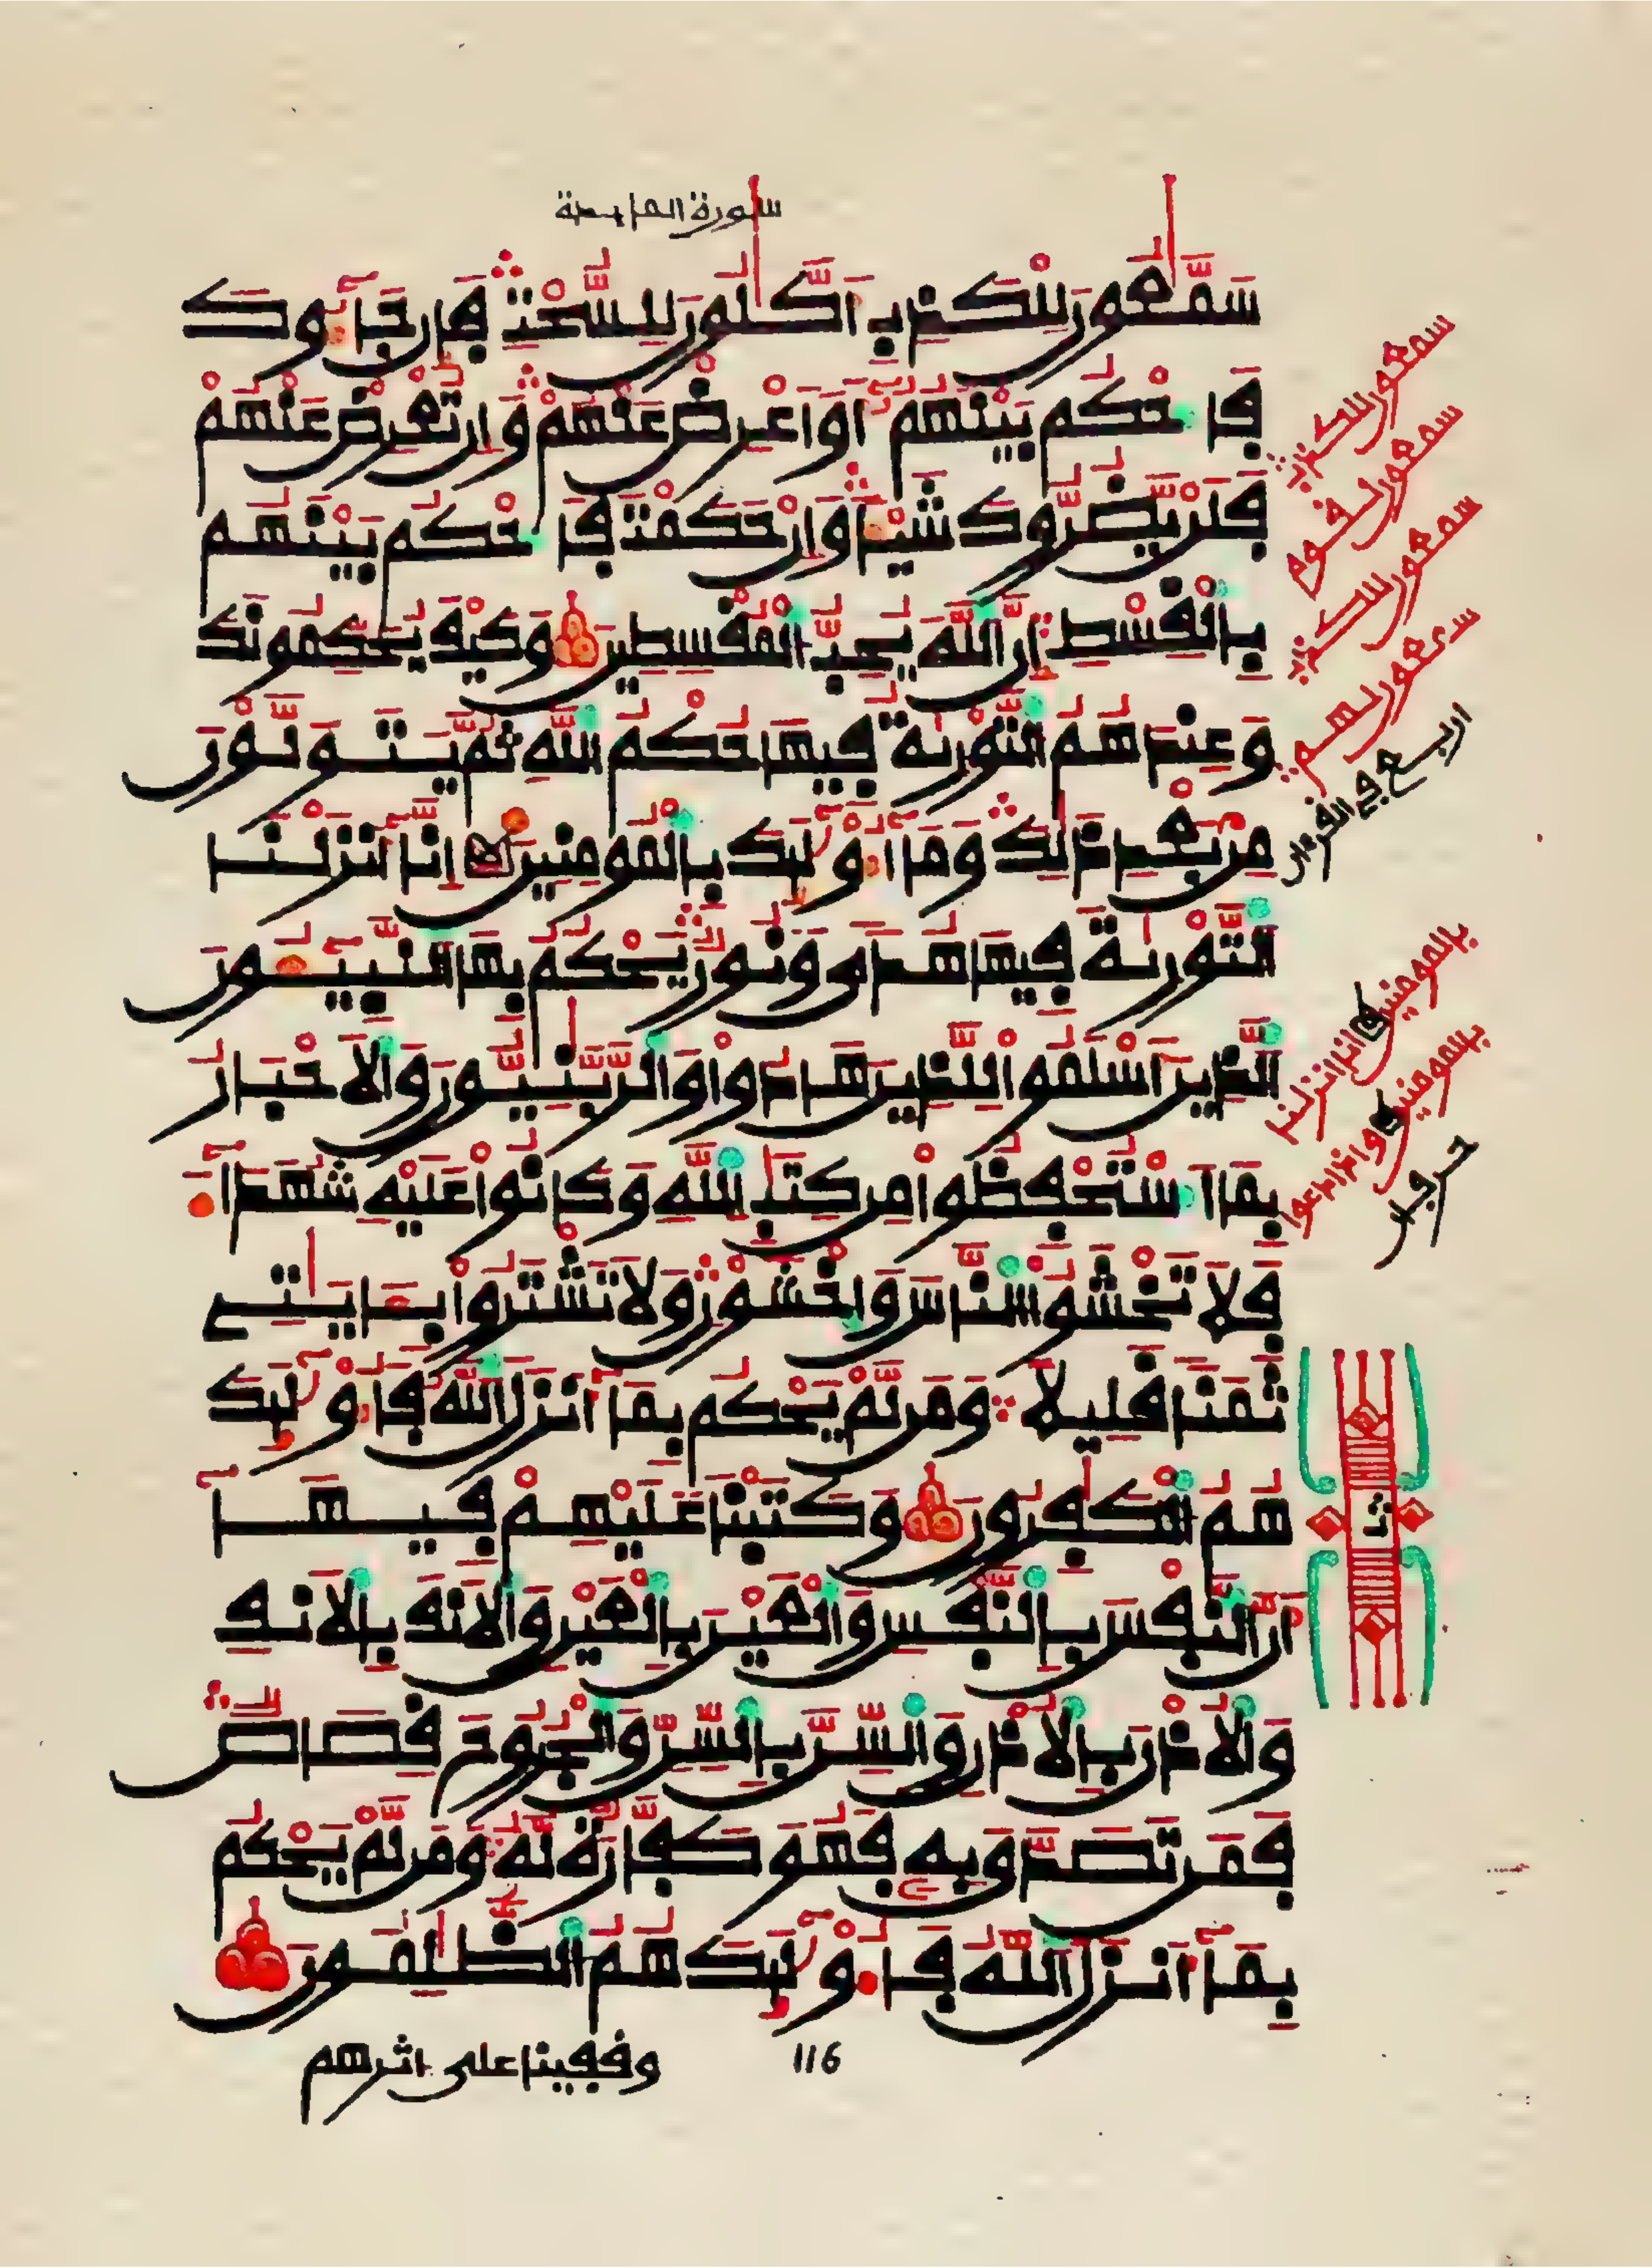 سورة المايدة
سَمَّٰعُونَ لِلْكَذِبِ أَكَّٰلُونَ لِلسُّحْتِ فَإِن جَآءُوكَ
فَاحْكُم بَيْنَهُمْ أَوَ اَعْرِضْ عَنْهُمْ وَإِن تُعْرِضْ عَنْهُمْ
فَلَنْ يَّضُرُّوكَ شَيْـًٔا وَإِنْ حَكَمْتَ فَاحْكُم بَيْنَهُم
بِالْقِسْطِ إِنَّ اللَّهَ يُحِبُّ الْمُقْسِطِينَ وَكَيْفَ يُحَكِّمُونَكَ
وَعِندَهُمُ التَّوْرَىٰةُ فِيهَا حُكْمُ اللَّهِ ثُمَّ يَتَوَلَّوْنَ
مِنۢ بَعْدِ ذَٰلِكَ وَمَآ أُوْلَٰٓئِكَ بِالْمُومِنِينَ إِنَّآ أَنزَلْنَا
التَّوْرَىٰةَ فِيهَا هُدًى وَنُورٌ يَحْكُمُ بِهَا النَّبِيٓـُٔونَ
الَّذِينَ أَسْلَمُوا لِلَّذِينَ هَادُوا وَالرَّبَّٰنِيُّونَ وَالْأَحْبَارُ
بِمَا اَسْتُحْفِظُوا مِن كِتَٰبِ اللَّهِ وَكَانُوا عَلَيْهِ شُهَدَآءَ
فَلَا تَخْشَوُا النَّاسَ وَاخْشَوْنِ وَلَا تَشْتَرُوا بِـَٔايَٰتِے
ثَمَنًا قَلِيلًا وَمَن لَّمْ يَحْكُم بِمَآ أَنزَلَ اللَّهُ فَأُوْلَٰٓئِكَ
هُمُ الْكَٰفِرُونَ وَكَتَبْنَا عَلَيْهِمْ فِيهَآ
أَنَّ النَّفْسَ بِالنَّفْسِ وَالْعَيْنَ بِالْعَيْنِ وَالْأَنفَ بِالْأَنفِ
وَالْأُذْنَ بِالْأُذْنِ وَالسِّنَّ بِالسِّنِّ وَالْجُرُوحَ قِصَاصٌ
فَمَن تَصَدَّقَ بِهِ فَهُوَ كَفَّارَةٌ لَّهُ وَمَن لَّمْ يَحْكُم
بِمَآ أَنزَلَ اللَّهُ فَأُوْلَٰٓئِكَ هُمُ الظَّٰلِمُونَ
116
وقفينا على اثرهم
سمعون للكذب
سمعون لقوم
سمعون للكذب
سمعون لهم
اربع في القرءان
بالمومنين انا انزلنا
بالمومنين واذا دعوا
حرفان
ثمن